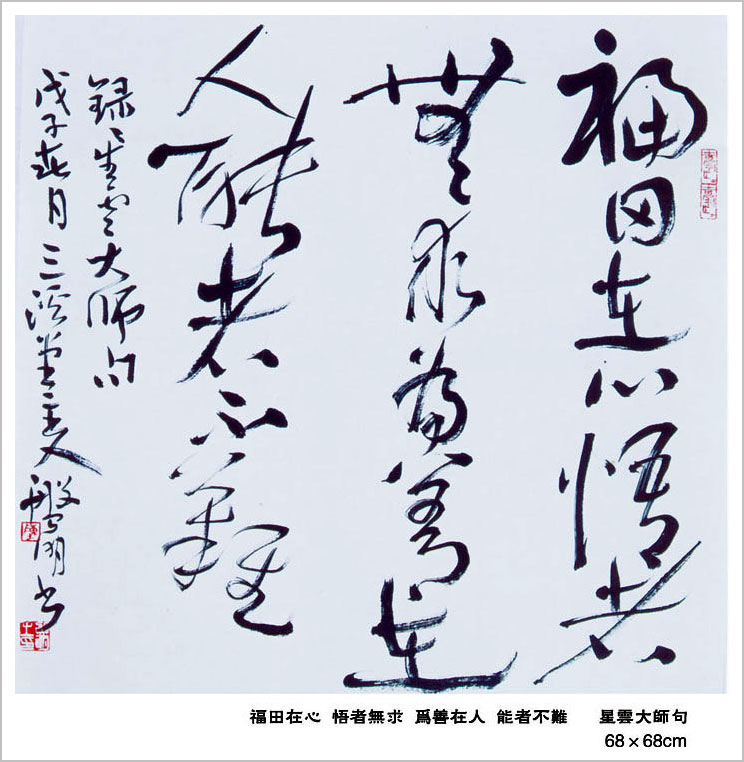 福田在心悟者
無求爲善在
人能者不難
録星雲大師句
戊子春月三溪堂主人明書
福田在心 悟者無求 爲善在人 能者不難 星雲大師句
68×68cm